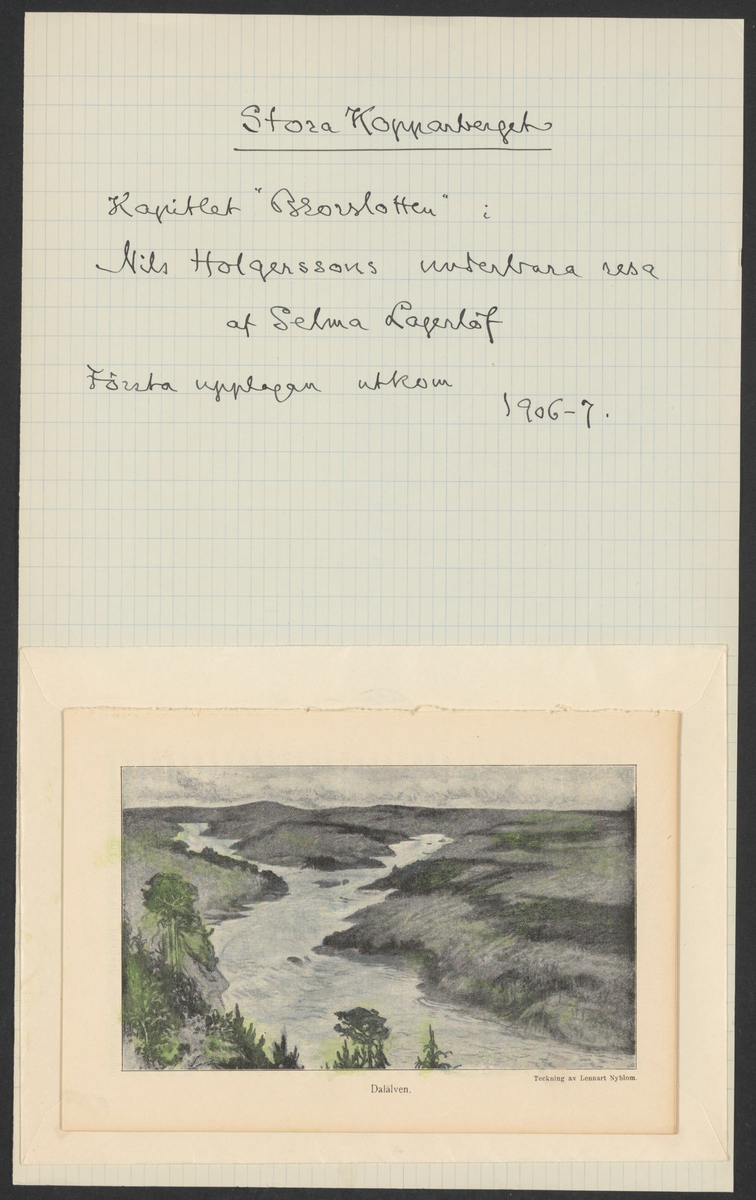 Stora Kopparberget
Kapitlet "Brorslotten" i
Nils Holgerssons underbara resa
af Selma Lagerlöf
Första upplagan utkom
1906-7.
Teckning av Lennart Nyblom.
Dalälven.